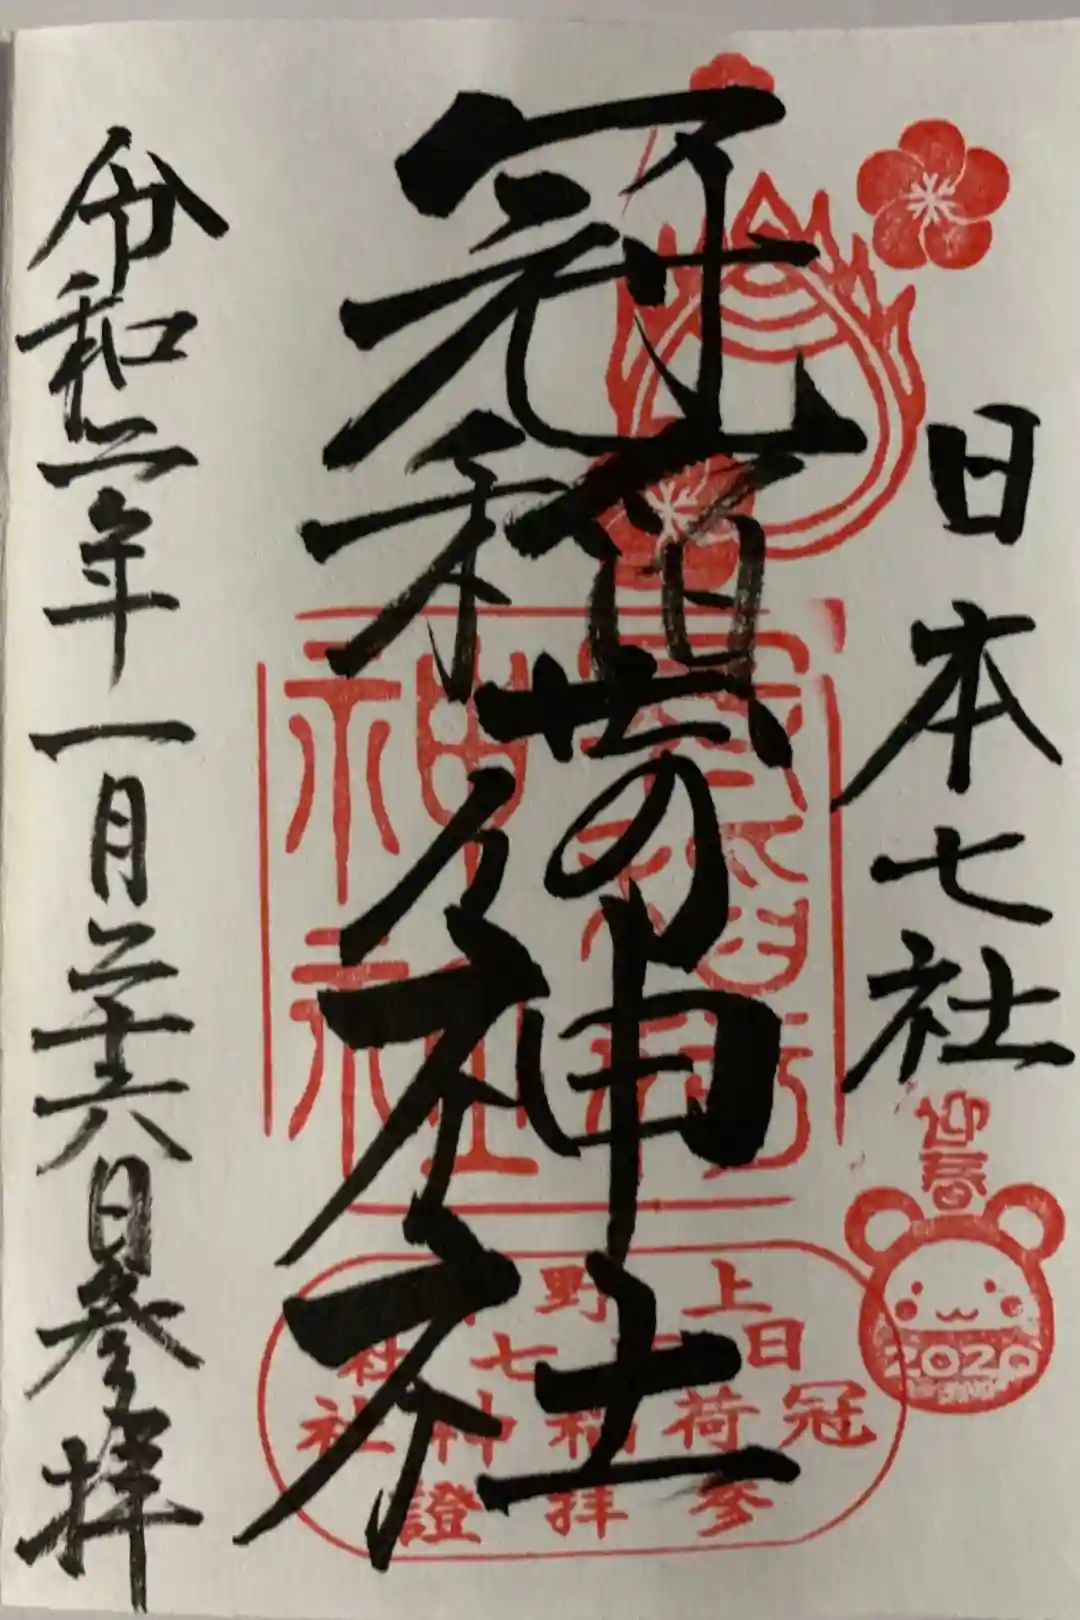 日本七社
迎春
2020
冠稲荷神社
冠稲荷
神社
上野
日本七社
冠稲荷神社
参拝證
令和二年一月二十六日参拝